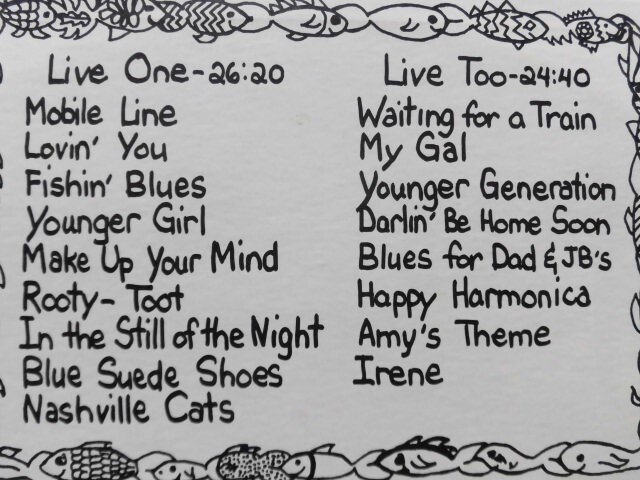 Live One-26:20
Mobile Line
Lovin' You
Fishin' Blues
Younger Girl
Make Up Your Mind
Rooty-Toot
In the Still of the Night
Blue Suede Shoes
Nashville Cats
Live Too-24:40
Waiting for a Train
My Gal
Younger Generation
Darlin' Be Home Soon
Blues for Dad & JB's
Happy Harmonica
Amy's Theme
Irene